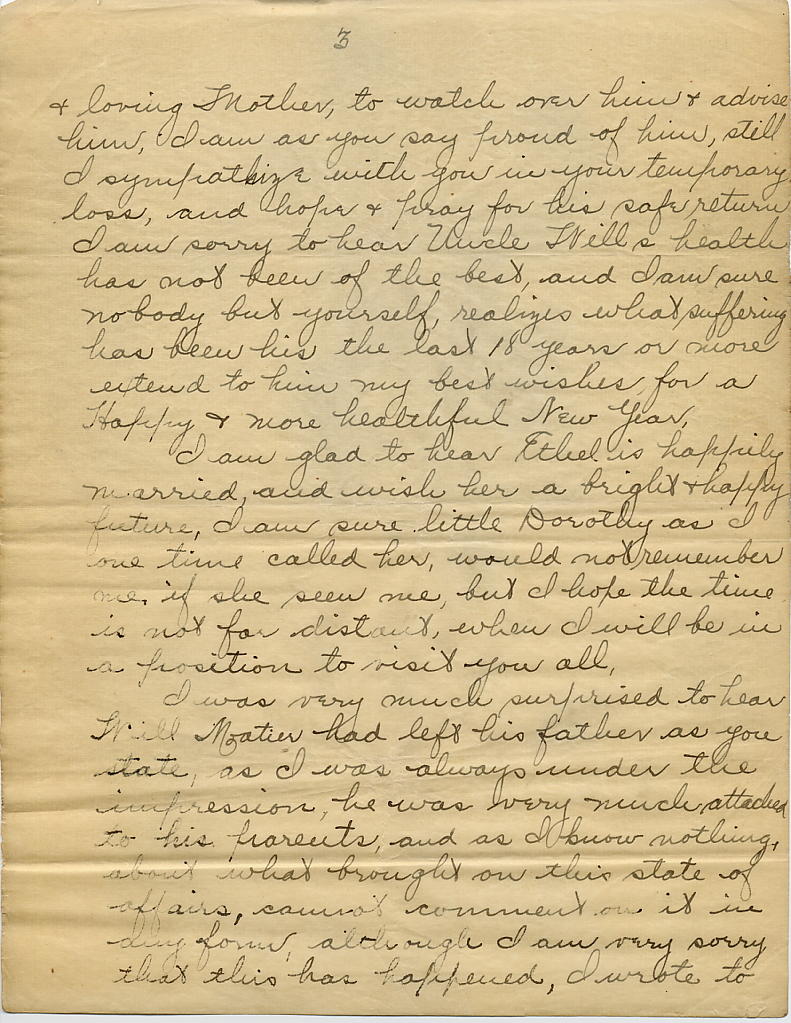 3
& loving Mother, to watch over him & advise
him, I am as you say proud of him, still
I sympathize with you in your temporary
loss, and hope & pray for his safe return
I am sorry to hear Uncle Will's health
has not been of the best, and I am sure
nobody but yourself, realizes what suffering
has been his the last 18 years or more
extend to him my best wishes for a
Happy & more healthful New Year,
I am glad to hear Ethel is happily
married, and wish her a bright & happy
future, I am sure little Dorothy as I
one time called her, would not remember
me, if she seen me, but I hope the time
is not far distant, when I will be in
a position to visit you all,
I was very much surprised to hear
Will had left his father as you
state, as I was always under the
impression, he was very much attached
to his parents, and as I know nothing,
about what brought on this state of
affairs, cannot comment on it in
any form, although I am very sorry
that this has happened, I wrote to